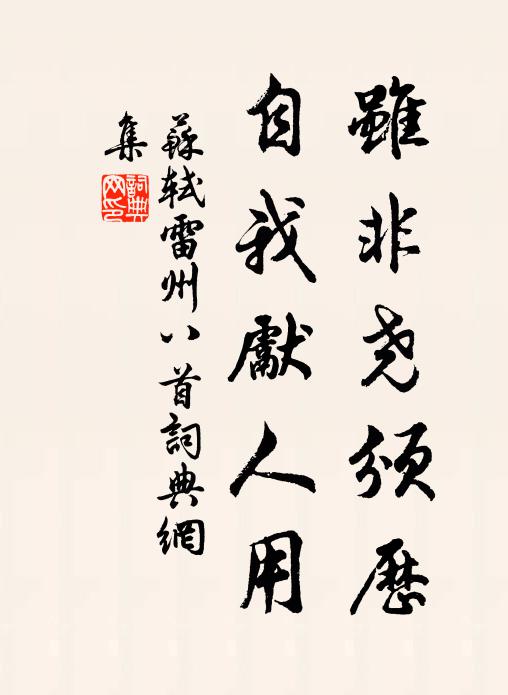 雖非尧頒歷
自我獻人用
蘇軾雷州八首詞典網
集
詞典
网印